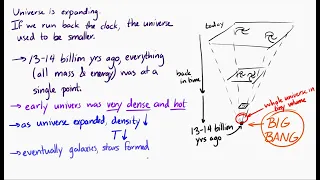 Universe is expanding.
If we run back the clock, the universe
used to be smaller.
→ 13-14 billion yrs ago, everything
(all mass & energy) was at a
single point.
→ early univers was very dense and hot
→ as universe expanded, density ↓
T ↓
→ eventually galaxies, stars formed
today
back
in time
13-14 billion
yrs ago
whole universe in
tiny volume
BIG
BANG